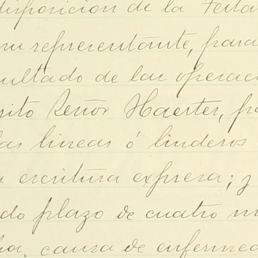 disposicion de la Testa
su representante, para
sultado de las operaci
rito Señor Haerter, p
las lineas ó linderos
a escritura expresa; y
do plazo de cuatro m
ha, causa de enfermed